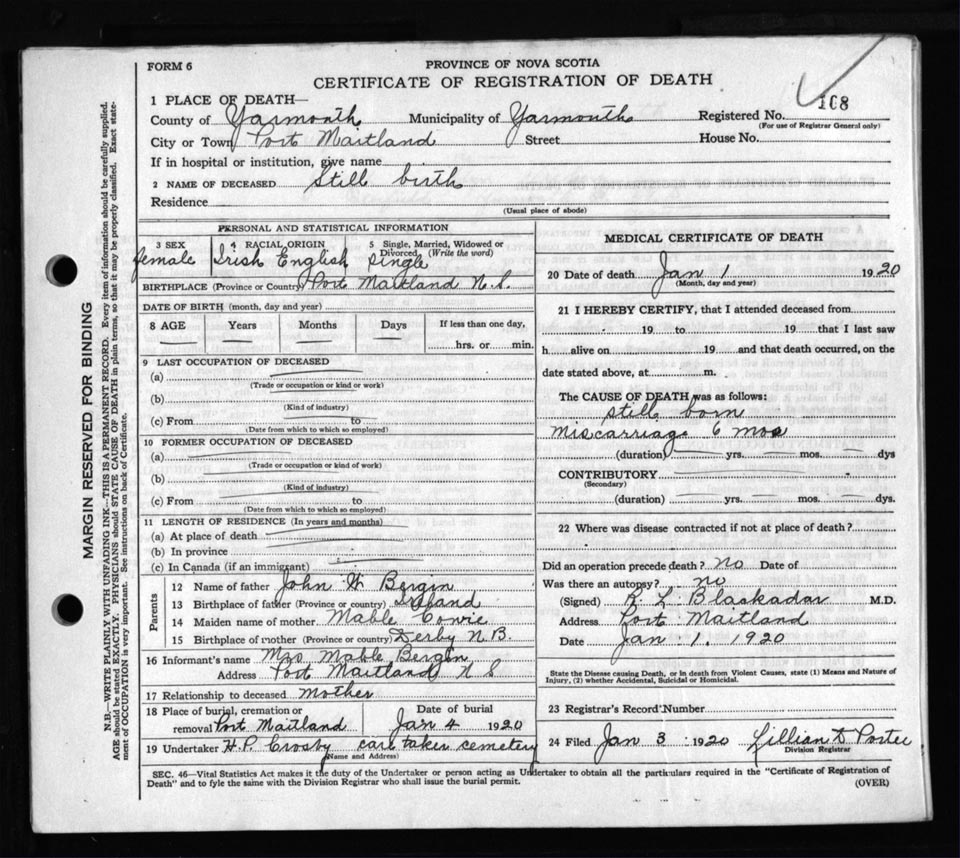 FORM 6
PROVINCE OF NOVA SCOTIA
CERTIFICATE OF REGISTRATION OF DEATH
168
1 PLACE OF DEATH—
County of Yarmouth Municipality of Yarmouth Registered No.
(For use of Registrar General only)
City or Town Port Maitland Street House No.
If in hospital or institution, give name
2 NAME OF DECEASED Still birth
Residence
(Usual place of abode)
MARGIN RESERVED FOR BINDING
N.B.—WRITE PLAINLY WITH UNFADING INK—THIS IS A PERMANENT RECORD. Every item of information should be carefully supplied.
AGE should be stated EXACTLY. PHYSICIANS should STATE CAUSE OF DEATH in plain terms, so that it may be properly classified. Exact state-
ment of OCCUPATION is very important. See instructions on back of Certificate.
PERSONAL AND STATISTICAL INFORMATION
3 SEX 4 RACIAL ORIGIN 5 Single, Married, Widowed or
Divorced (Write the word)
female Irish English single
BIRTHPLACE (Province or Country) Port Maitland N.S.
DATE OF BIRTH (month, day and year)
8 AGE Years Months Days If less than one day,
hrs. or min.
9 LAST OCCUPATION OF DECEASED
(a)
(Trade or occupation or kind or work)
(b)
(Kind of industry)
(c) From to
(Date from which to which so employed)
10 FORMER OCCUPATION OF DECEASED
(a)
(Trade or occupation or kind of work)
(b)
(Kind of industry)
(c) From to
(Date from which to which so employed)
11 LENGTH OF RESIDENCE (In years and months)
(a) At place of death
(b) In province
(c) In Canada (if an immigrant)
Parents
12 Name of father John W Bergin
13 Birthplace of father (Province or country) Ireland
14 Maiden name of mother Mable Cowie
15 Birthplace of mother (Province or country) Derby N.B.
16 Informant's name Mrs Mable Bergin
Address Port Maitland N S
17 Relationship to deceased mother
18 Place of burial, cremation or Date of burial
removal Port Maitland Jan 4 1920
19 Undertaker H. P. Crosby care taker cemetery
(Name and Address)
MEDICAL CERTIFICATE OF DEATH
20 Date of death Jan 1 1920
(Month, day and year)
21 I HEREBY CERTIFY, that I attended deceased from
19 to 19 that I last saw
h alive on 19 and that death occurred, on the
date stated above, at m.
The CAUSE OF DEATH was as follows:
still born
miscarriage 6 mos
(duration) yrs. mos. dys
CONTRIBUTORY
(Secondary)
(duration) yrs. mos. dys.
22 Where was disease contracted if not at place of death?
Did an operation precede death? No Date of
Was there an autopsy? no
(Signed) L. Blackadar M.D.
Address Port Maitland
Date Jan 1. 1920
State the Disease causing Death, or in death from Violent Causes, state (1) Means and Nature of
Injury, (2) whether Accidental, Suicidal or Homicidal.
23 Registrar's Record Number
24 Filed Jan 3 1920 Lillian Porter
Division Registrar
SEC. 46—Vital Statistics Act makes it the duty of the Undertaker or person acting as Undertaker to obtain all the particulars required in the "Certificate of Registration of
Death" and to fyle the same with the Division Registrar who shall issue the burial permit.
(OVER)